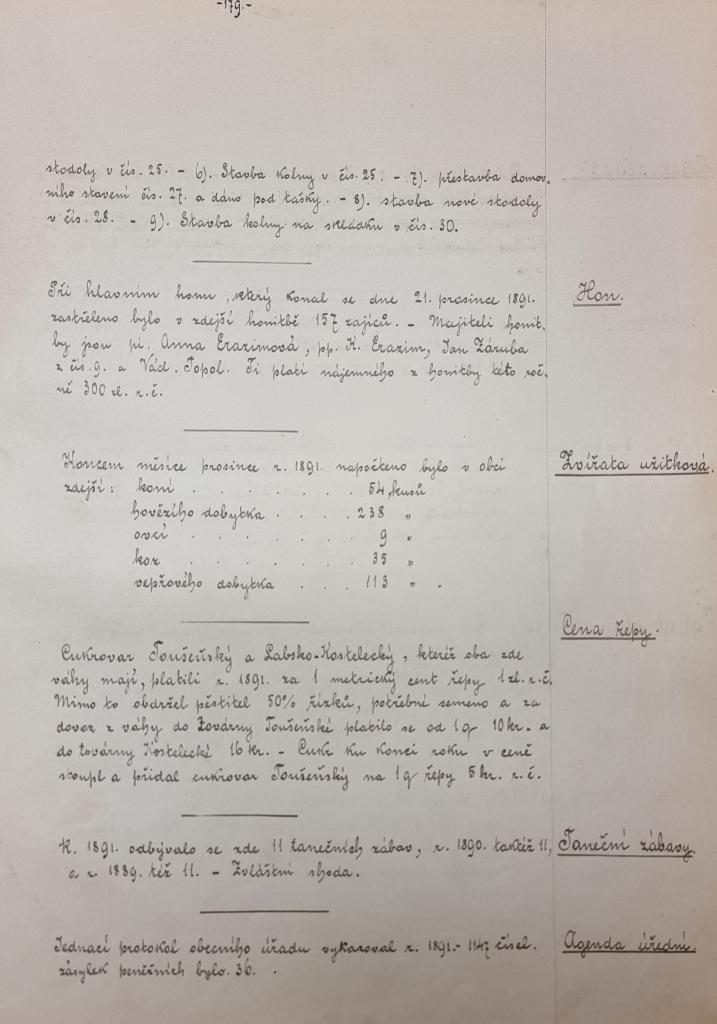 -179.-
stodoly v čís. 25. - 6). Stavba kolny v čís. 25. - 7). přestavba domov-
ního stavení čís. 27. a dáno pod tašky. - 8). stavba nové stodoly
v čís. 28. - 9). Stavba kolny na skládku v čís. 30.
Při hlavním honu, který konal se dne 21. prosince 1891.
Hon.
zastřeleno bylo v zdejší honitbě 157 zajíců. - Majiteli honit-
by jsou pí. Anna Erazimová, pp. K. Erazim, Jan Záruba
z čís. 9. a Vád. Topol. Ti platí nájemného z honitby této roč-
ně 300 zl. r. č.
Koncem měsíce prosince r. 1891. napočteno bylo v obci
Zvířata užitková.
zdejší: koní . . . . . . . 54 kusů
hovězího dobytka . . . . 238 "
ovcí . . . . . . . 9 "
koz . . . . . . . 35 "
vepřového dobytka . . . 113 " .
Cena řepy.
Cukrovar Toušeňský a Labsko-Kostelecký, kteréž oba zde
váhy mají, platili r. 1891. za 1 metrický cent řepy 1 zl. r. č.
Mimo to obdržel pěstitel 50% řízků, potřebné semeno a za
dovoz z váhy do továrny Toušeňské platilo se od 1 q 10 kr. a
do továrny Kostelecké 16 kr. - Cukr ku konci roku v ceně
stoupl a přidal cukrovar Toušeňský na 1 q řepy 5 kr. r. č.
R. 1891. odbývalo se zde 11 tanečních zábav, r. 1890. taktéž 11,
Taneční zábavy.
a r. 1889. též 11. - Zvláštní shoda.
Jednací protokol obecního úřadu vykazoval r. 1891.- 1147 čísel.
Agenda úřední.
zásylek peněžních bylo. 36. .